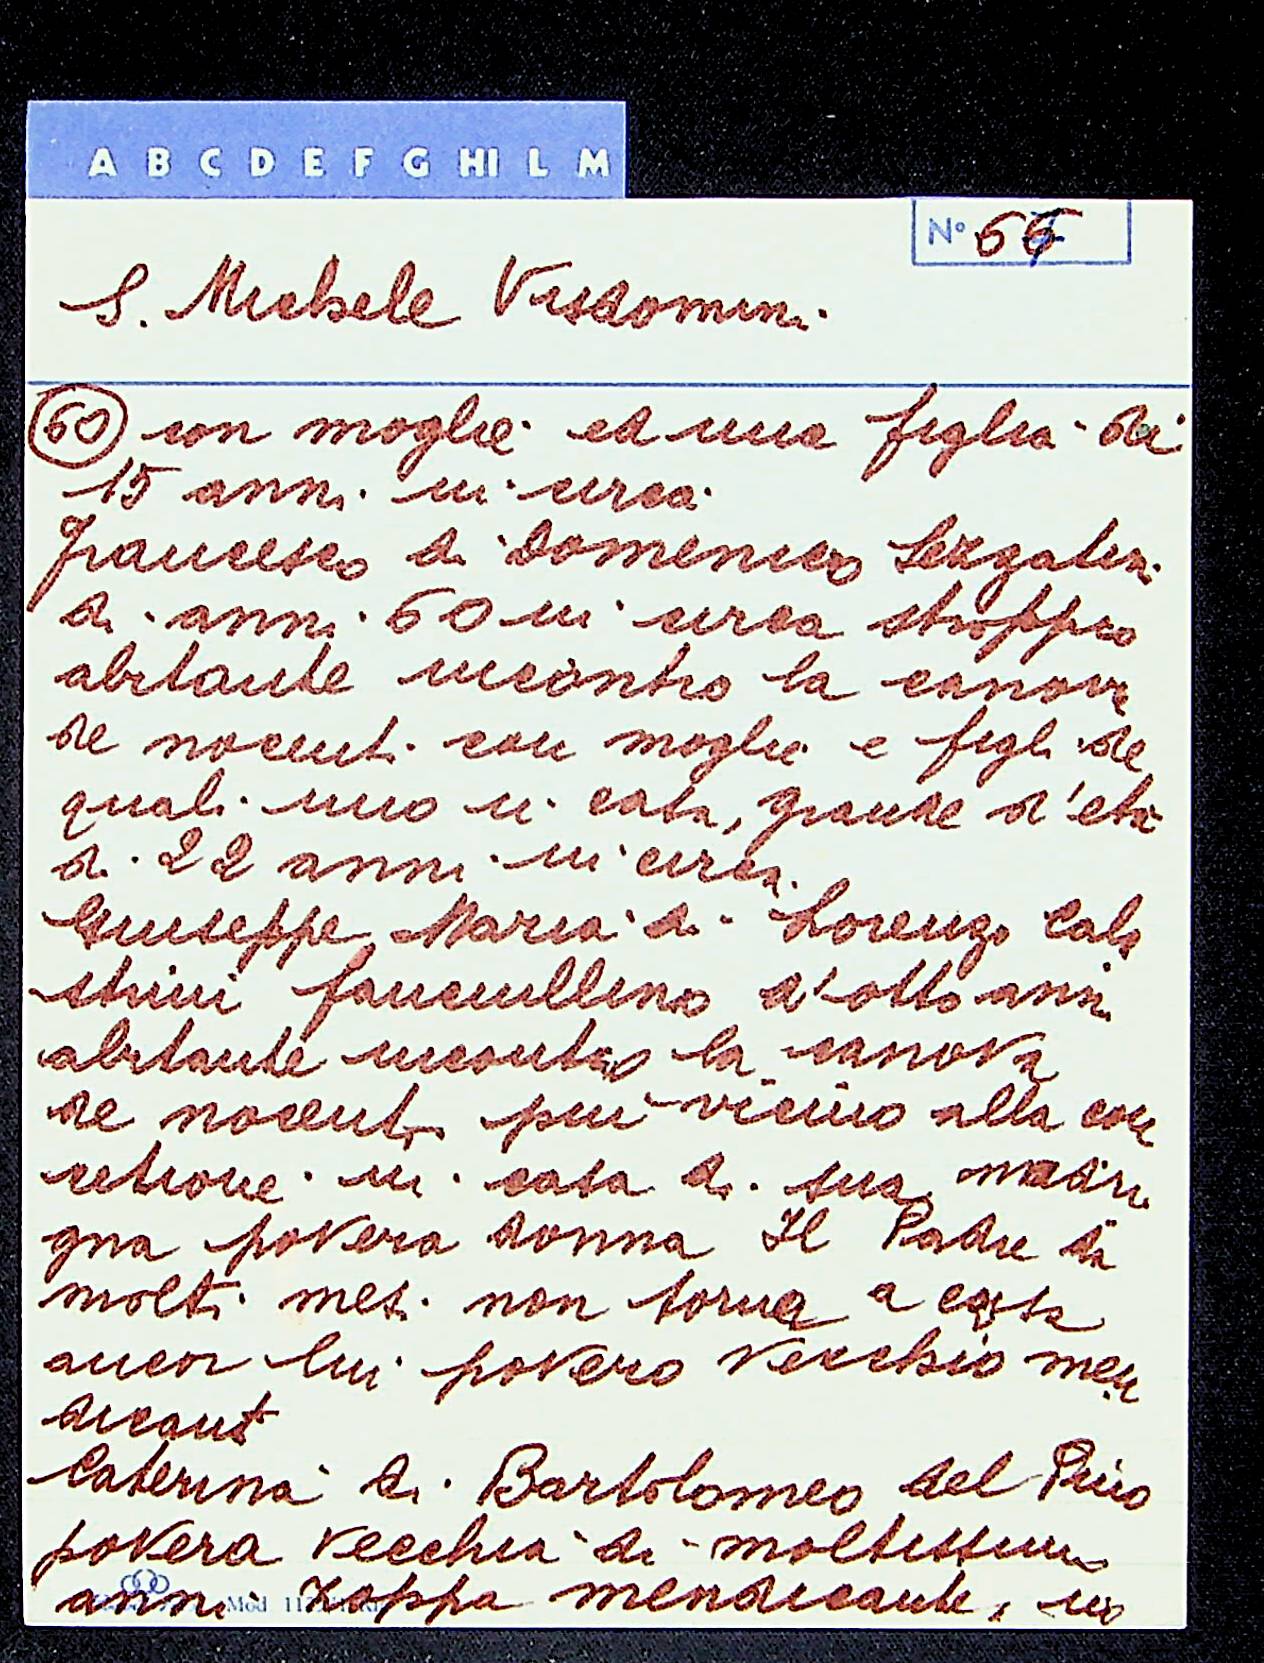 A B C D E F G HI L M
N° 66
S. Michele Visdomini
60 con moglie ed una figlia di
15 anni in circa
Francesco di Domenico
di anni 60 in circa stroppio
abitante incontro la canova
de nocenti con moglie e figli de
quali uno in casa, grande d'età
di 22 anni in circa.
Giuseppe Maria di Lorenzo Cala
strini fanciullino d'otto anni
abitante incontro la canova
de nocenti piu vicino alla con
cetione in casa di sua madri
gna povera donna Il Padre di
molti mesi non torna a casa
ancor lui povero vecchio men
dicant
Caterina di Bartolomeo del Pino
povera vecchia di moltissimi
anni zoppa mendicante, in
Mod